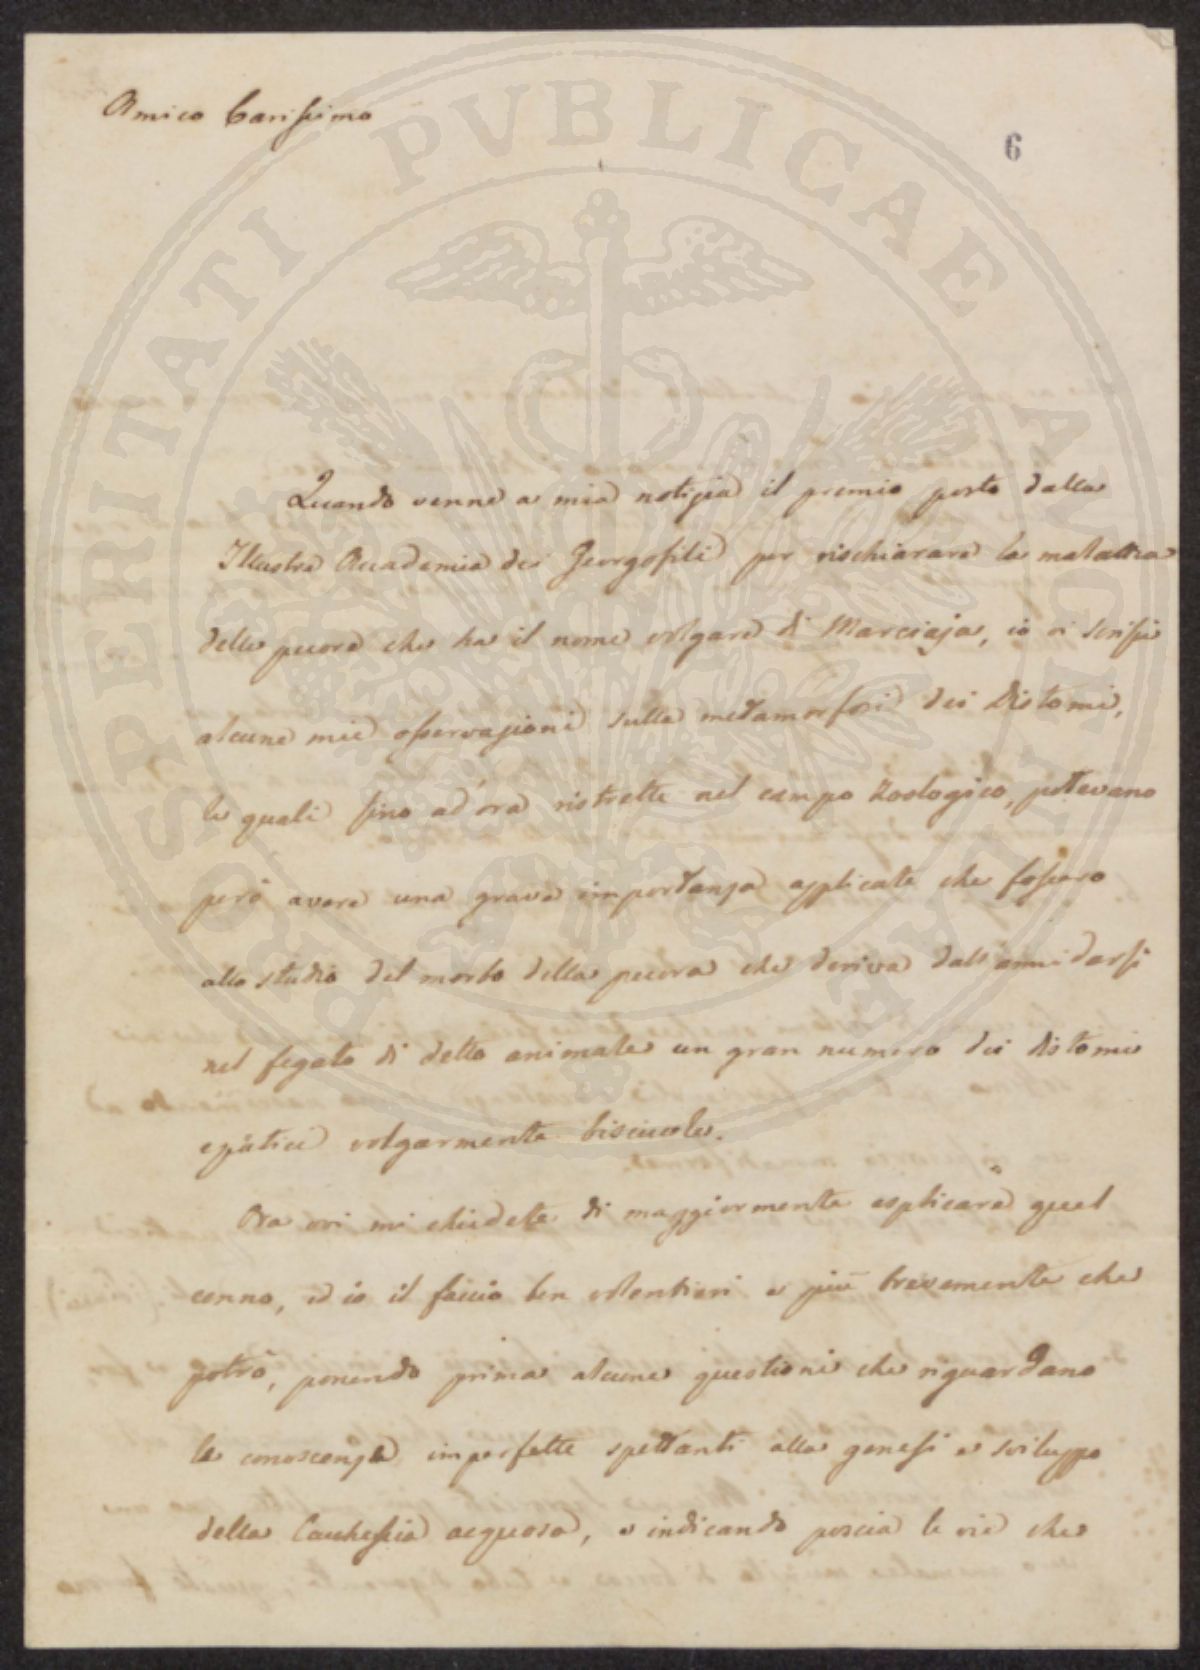 Amico Carissimo
6
PROSPERITATI PVBLICAE AVGENDAE
Quando venne a mia notizia il premio posto dalla
Illustre Accademia dei Georgofili per rischiarare la malattia
delle pecore che ha il nome volgare di Marciaja, io vi scrissi
alcune mie osservazioni sulle metamorfosi dei Distomi,
le quali fino ad'ora ristrette nel campo Zoologico, potevano
però avere una grave importanza applicate che fossero
allo studio del morbo della pecora che deriva dall'annidarsi
nel fegato di detto animale un gran numero dei distomi
epatici volgarmente bisciuole.
Ora voi mi chiedete di maggiormente esplicare quel
cenno, ed io il faccio ben volentieri e più brevemente che
potrò, ponendo prima alcune questioni che riguardano
le conoscenze imperfette spettanti alla genesi e sviluppo
della Cachessia acquosa, e indicando poscia le vie che